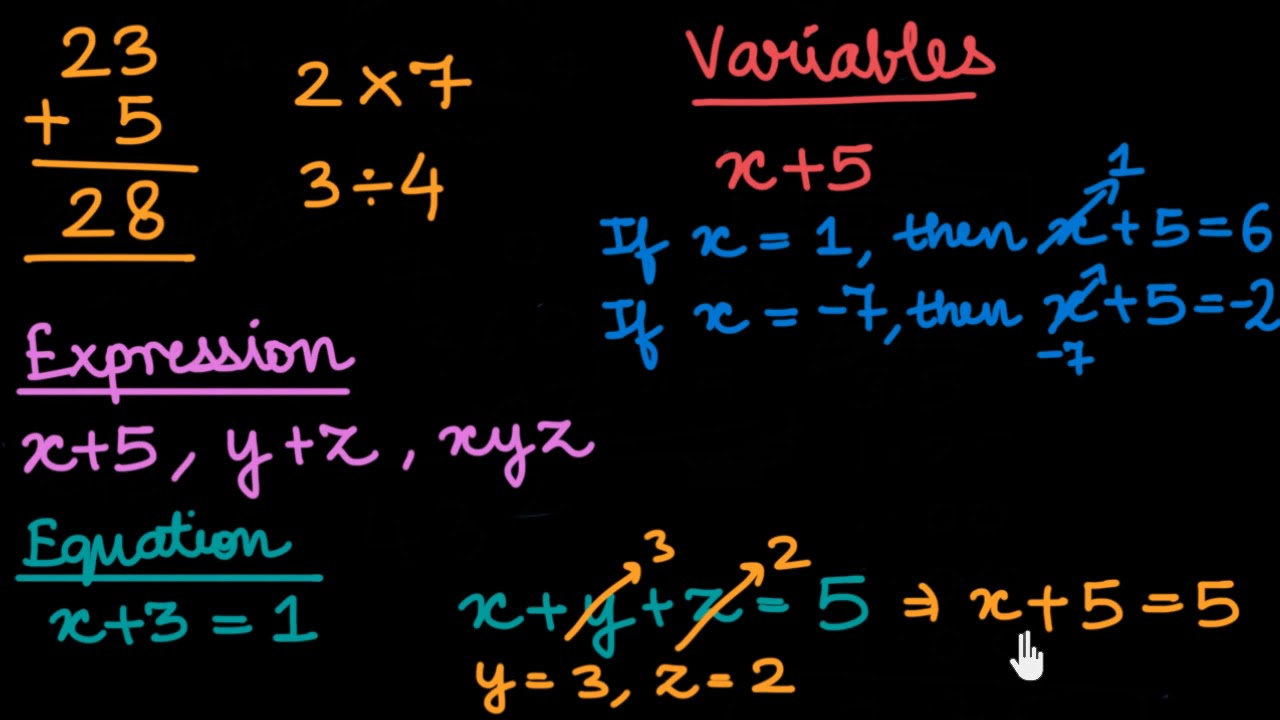 23
+ 5
28
2 × 7
3 ÷ 4
Variables
x+5
1
If x = 1, then x+5=6
If x = -7, then x+5=-2
-7
Expression
x+5, y+z, xyz
Equation
x+3 = 1
3 2
x+y+z=5 ⇒ x+5=5
y=3, z=2